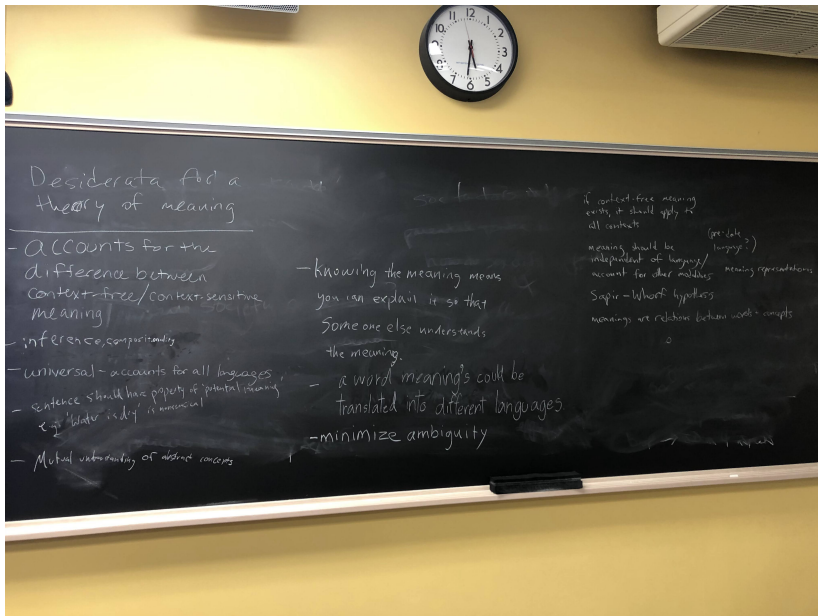 12
1
2
3
4
5
6
7
8
9
10
11
Desiderata for a
theory of meaning
- accounts for the
difference between
context-free/context-sensitive
meaning
- inference, compositionality
- universal - accounts for all languages,
- sentence should have property of 'potential meaning'
e.g. 'Water is dry' is nonsensical
- Mutual understanding of abstract concepts
- Knowing the meaning means
you can explain it so that
someone else understands
the meaning.
- a word meaning's could be
translated into different languages
- minimize ambiguity
if context-free meaning
exists, it should apply to
all contexts
(pre-date
language?)
meaning should be
independent of language/
account for other modalities meaning representations
Sapir-Whorf hypothesis
meanings are relations between words + concepts